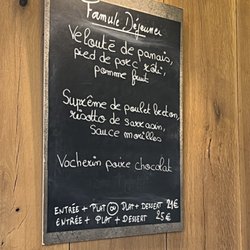 Famule Déjeuner
Velouté de panais,
pied de porc rôti,
pomme fruit
Suprême de poulet breton,
risotto de sarrasin,
sauce morilles
Vacherin poire chocolat
ENTRÉE + PLAT OU PLAT + DESSERT 21€
ENTRÉE + PLAT + DESSERT 25€